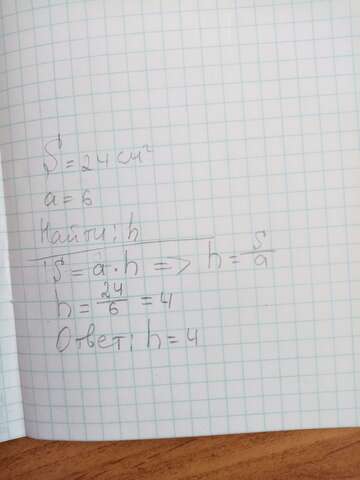 S = 24 см²
a = 6
Найти: h
S = a · h => h = S/a
h = 24/6 = 4
Ответ: h = 4